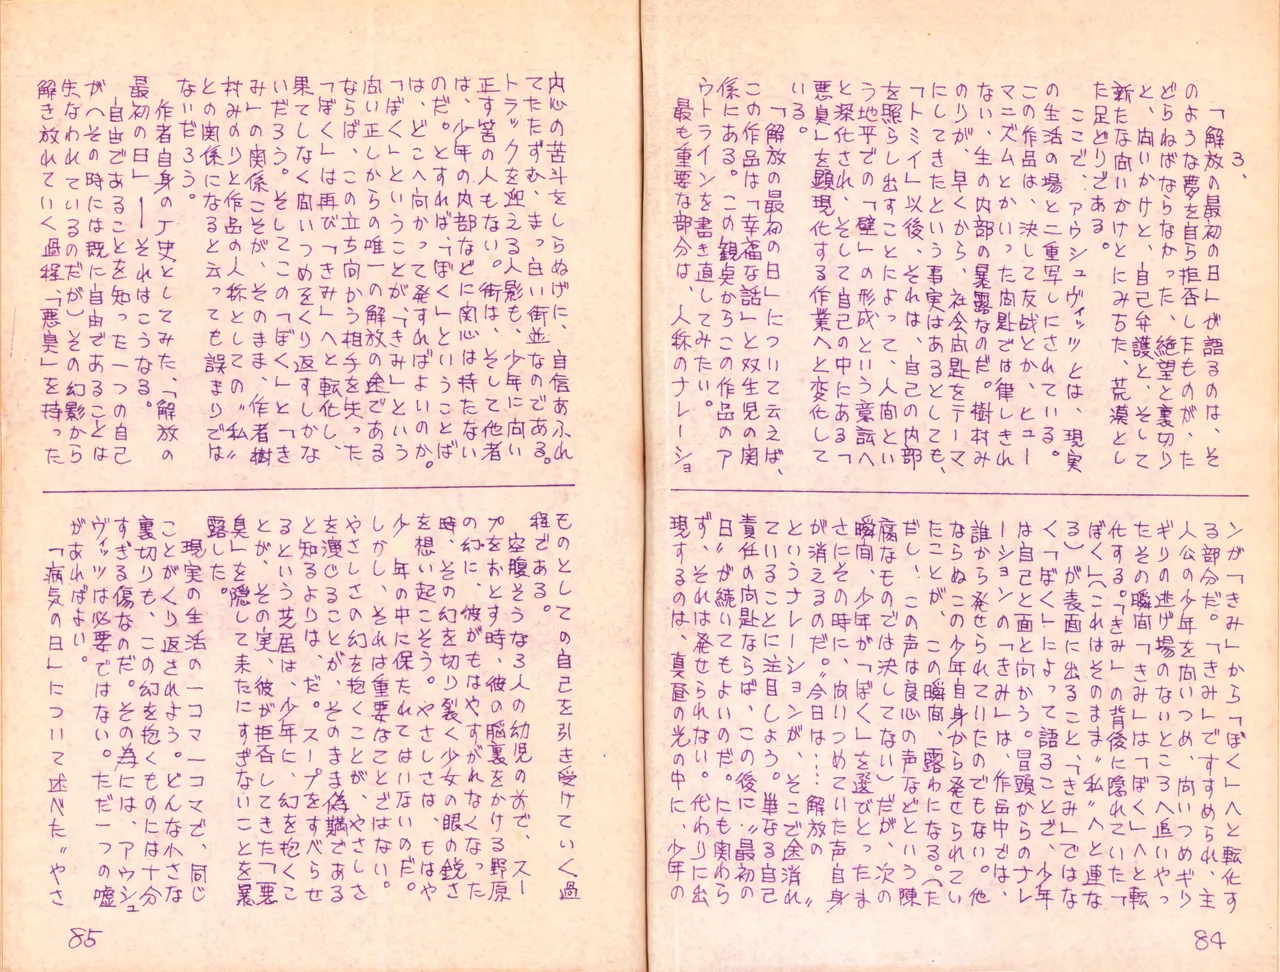 3、
「解放の最初の日」が語るのは、そ
のような夢を自ら拒否したものが、た
どらねばならなかった、絶望と裏切り
と、向いかけと、自己弁護と、そして
新たな向いかけとにみちた、荒漠とし
た足どりである。
ここで、アウシュヴィッツとは、現実
の生活の場と二重写しにされている。
この作品は、決して反戦とか、ヒュー
マニズムとかいった問題では律しきれ
ない、生の内部の暴露なのだ。樹村み
のりが、早くから、社会問題をテーマ
にしてきたという事実はあるとしても、
「トミイ」以後、それは、自己の内部
を照らし出すことによって、人間とい
う地平での「壁」の形成という意識へ
と深化され、そして自己の中にある「
悪臭」を顕現化する作業へと変化して
いる。
「解放の最初の日」について云えば、
この作品は「幸福な話」と双生児の関
係にある。この観点からこの作品のア
ウトラインを書き直してみたい。
最も重要な部分は、人称のナレーショ
ンが「きみ」から「ぼく」へと転化す
る部分だ。「きみ」ですすめられ、主
人公の少年を問いつめ、問いつめギリ
ギリの逃げ場のないところへ追いやっ
たその瞬間「きみ」は「ぼく」へと転
化する。「きみ」の背後に隠れていた「
ぼく」(これはそのまま〝私〟へと連な
る)が表面に出ること、「きみ」ではな
く「ぼく」によって語ることで、少年
は自己と面と向かう。冒頭からのナレ
ーションの「きみ」は、作品中では、
誰から発せられていたのでもない。他
ならぬこの少年自身から発せられてい
たことが、この瞬間、露わになる。(た
だし、この声は良心の声などという陳
腐なものでは決してない)だが、次の
瞬間、少年が「ぼく」を選びとったま
さにその時に、問いつめていた声自身
が消えるのだ。〝今日は……解放の〟
というナレーションが、そこで途消れ
ていることに注目しよう。単なる自己
責任の問題ならば、この後に〝最初の
日〟が続いてもよいのだ。にも関わら
ず、それは発せられない。代わりに出
現するのは、真昼の光の中に、少年の
84
内心の苦斗をしらぬげに、自信あふれ
てたたずむ、まっ白い街並なのである。
トラックを迎える人影も、少年に問い
正す筈の人もない。街は、そして他者
は、少年の内部などに関心は持たない
のだ。とすれば、「ぼく」ということば
は、どこへ向かって発すればよいのか。
「ぼく」ということが、「きみ」という
問い正しからの唯一の解放の途である
ならば、この立ち向かう相手を失った
「ぼく」は再び「きみ」へと転化し、
果てしなく問いつめをくり返すしかな
いだろう。そしてこの「ぼく」と「き
み」の関係こそが、そのまま、作者樹
村みのりと作品の人称としての〝私〟
との関係になると云っても誤まりでは
ないだろう。
作者自身の〝史としてみた、「解放の
最初の日」――それはこうなる。
自由であることを知った一つの自己
が(その時には既に自由であることは
失なわれているのだが)その幻影から
解き放れていく過程、「悪臭」を持った
ものとしての自己を引き受けていく過
程である。
空腹そうな3人の幼児のすで、スー
プをおとす時、彼の脳裏をかける野原
の幻に、彼がもはやすがれなくなった
時、その幻を切り裂く少女の眼の鋭さ
を想い起こそう。やさしさは、もはや
少年の中に保たれてはいないのだ。
しかし、それは重要なことではない。
やさしさの幻を抱くことが、やさしさ
を演じることが、そのまま偽瞞である
と知るよりは、だ。スープをすべらせ
るという芝居は、少年に、幻を抱くこ
とが、その実、彼が拒否してきた「悪
臭」を隠して来たにすぎないことを暴
露した。
現実の生活の一コマ一コマで、同じ
ことがくり返されよう。どんな小さな
裏切りも、この幻を抱くものには十分
すぎる傷なのだ。その為には、アウシュ
ヴィッツは必要ではない。ただ一つの嘘
があればよい。
「病気の日」について述べた〝やさ
85